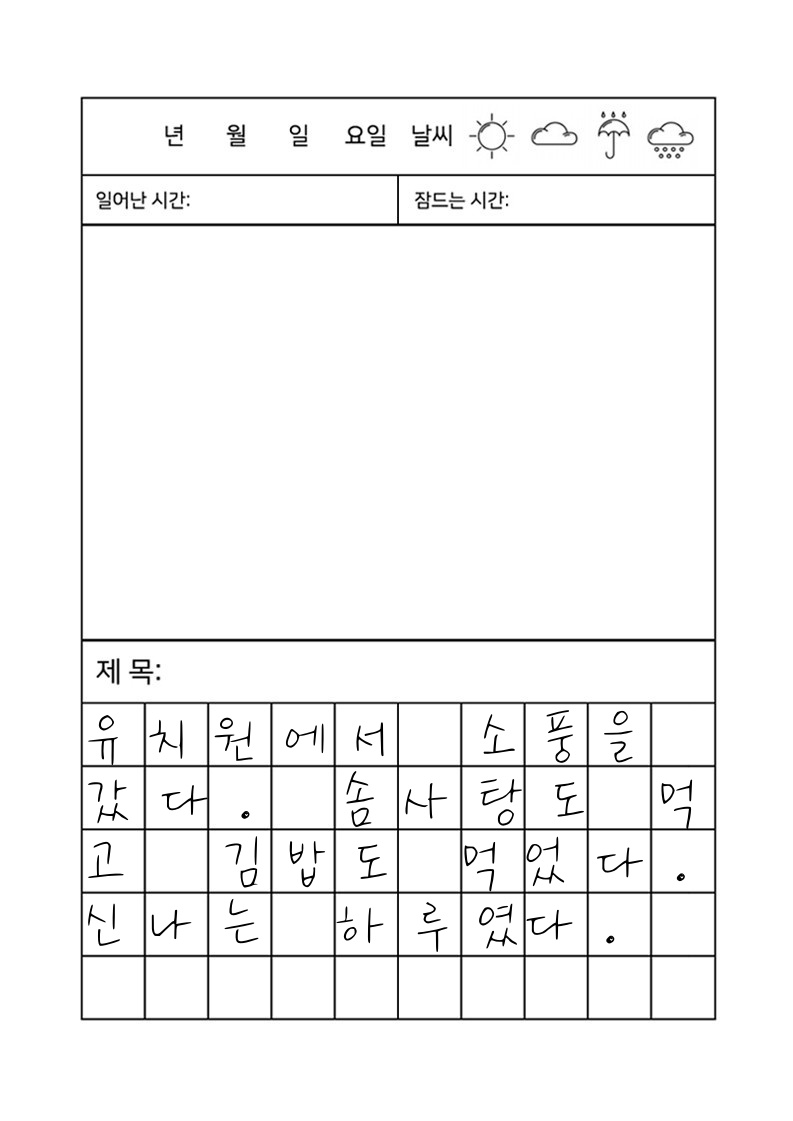 년 월 일 요일 날씨
일어난 시간: 잠드는 시간:
제 목:
유치원에서 소풍을
갔다. 솜사탕도 먹
고 김밥도 먹었다.
신나는 하루였다.